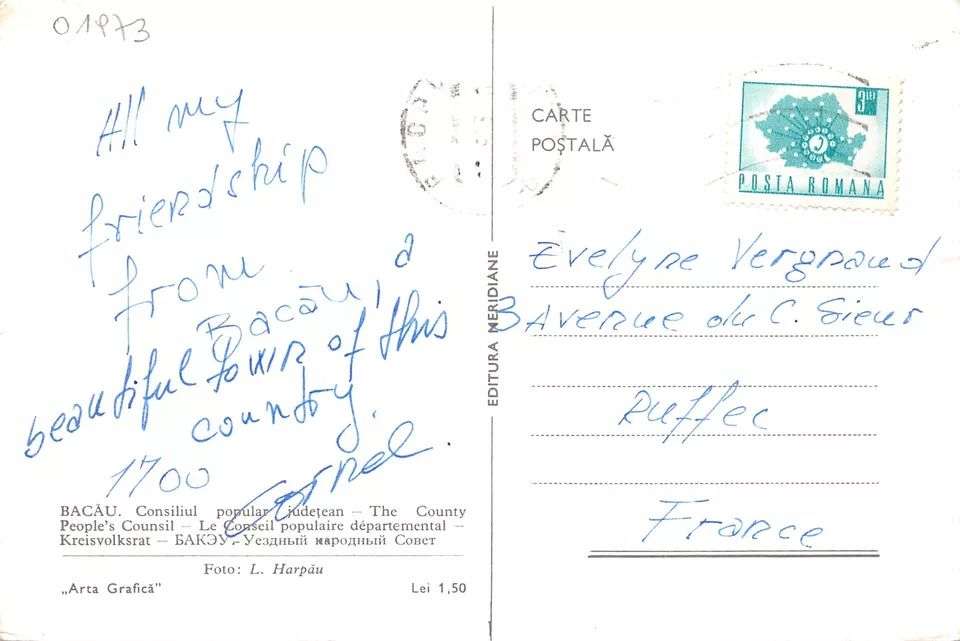 01973
All my
friendship
from
Bacău, a
beautiful town of this
country.
1700
Cornel
BACĂU. Consiliul popular județean — The County
People's Counsil — Le Conseil populaire départemental —
Kreisvolksrat — БАКЭУ. Уездный народный Совет
Foto: L. Harpău
„Arta Grafică" Lei 1,50
EDITURA MERIDIANE
CARTE
POȘTALĂ
3 LEI
POSTA ROMANA
Evelyne Vergnaud
3 Avenue du C. Sieur
Ruffec
France